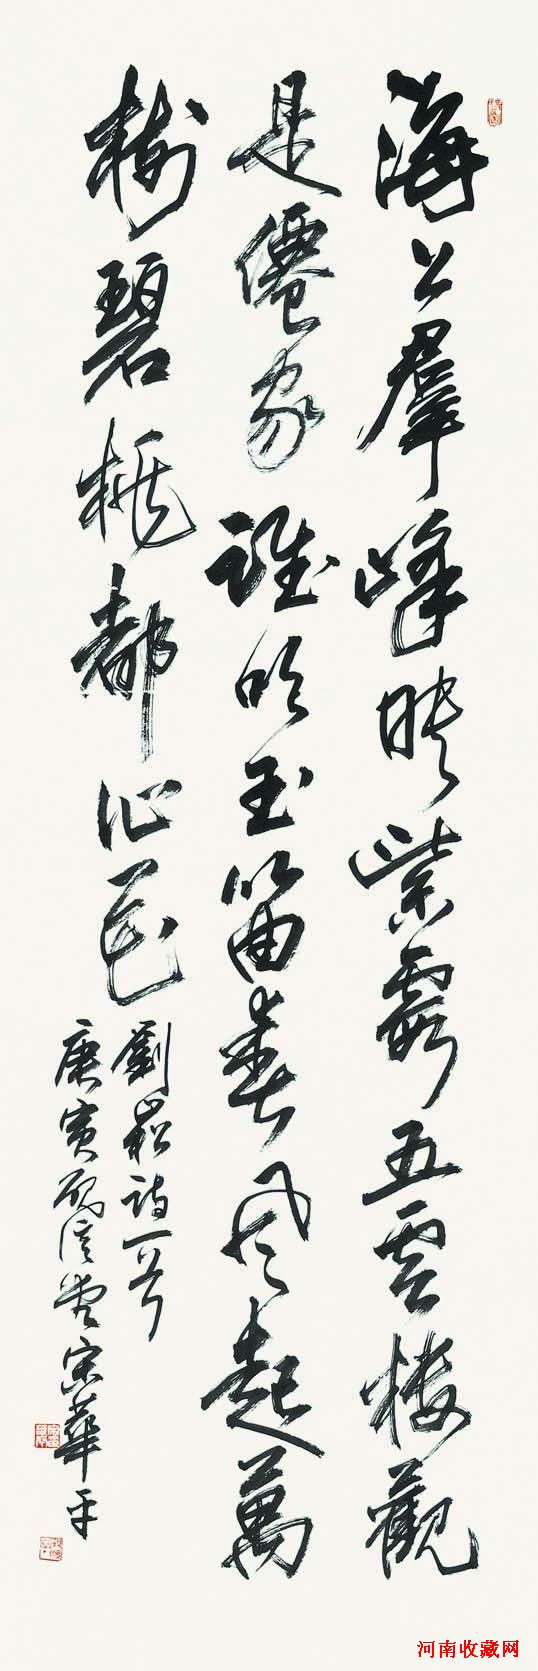 海上羣峰映紫霞五雲樓觀
是僊家誰吹玉笛春風起萬
樹碧桃都作花
劉崧詩一首
庚寅宋華平
河南收藏网